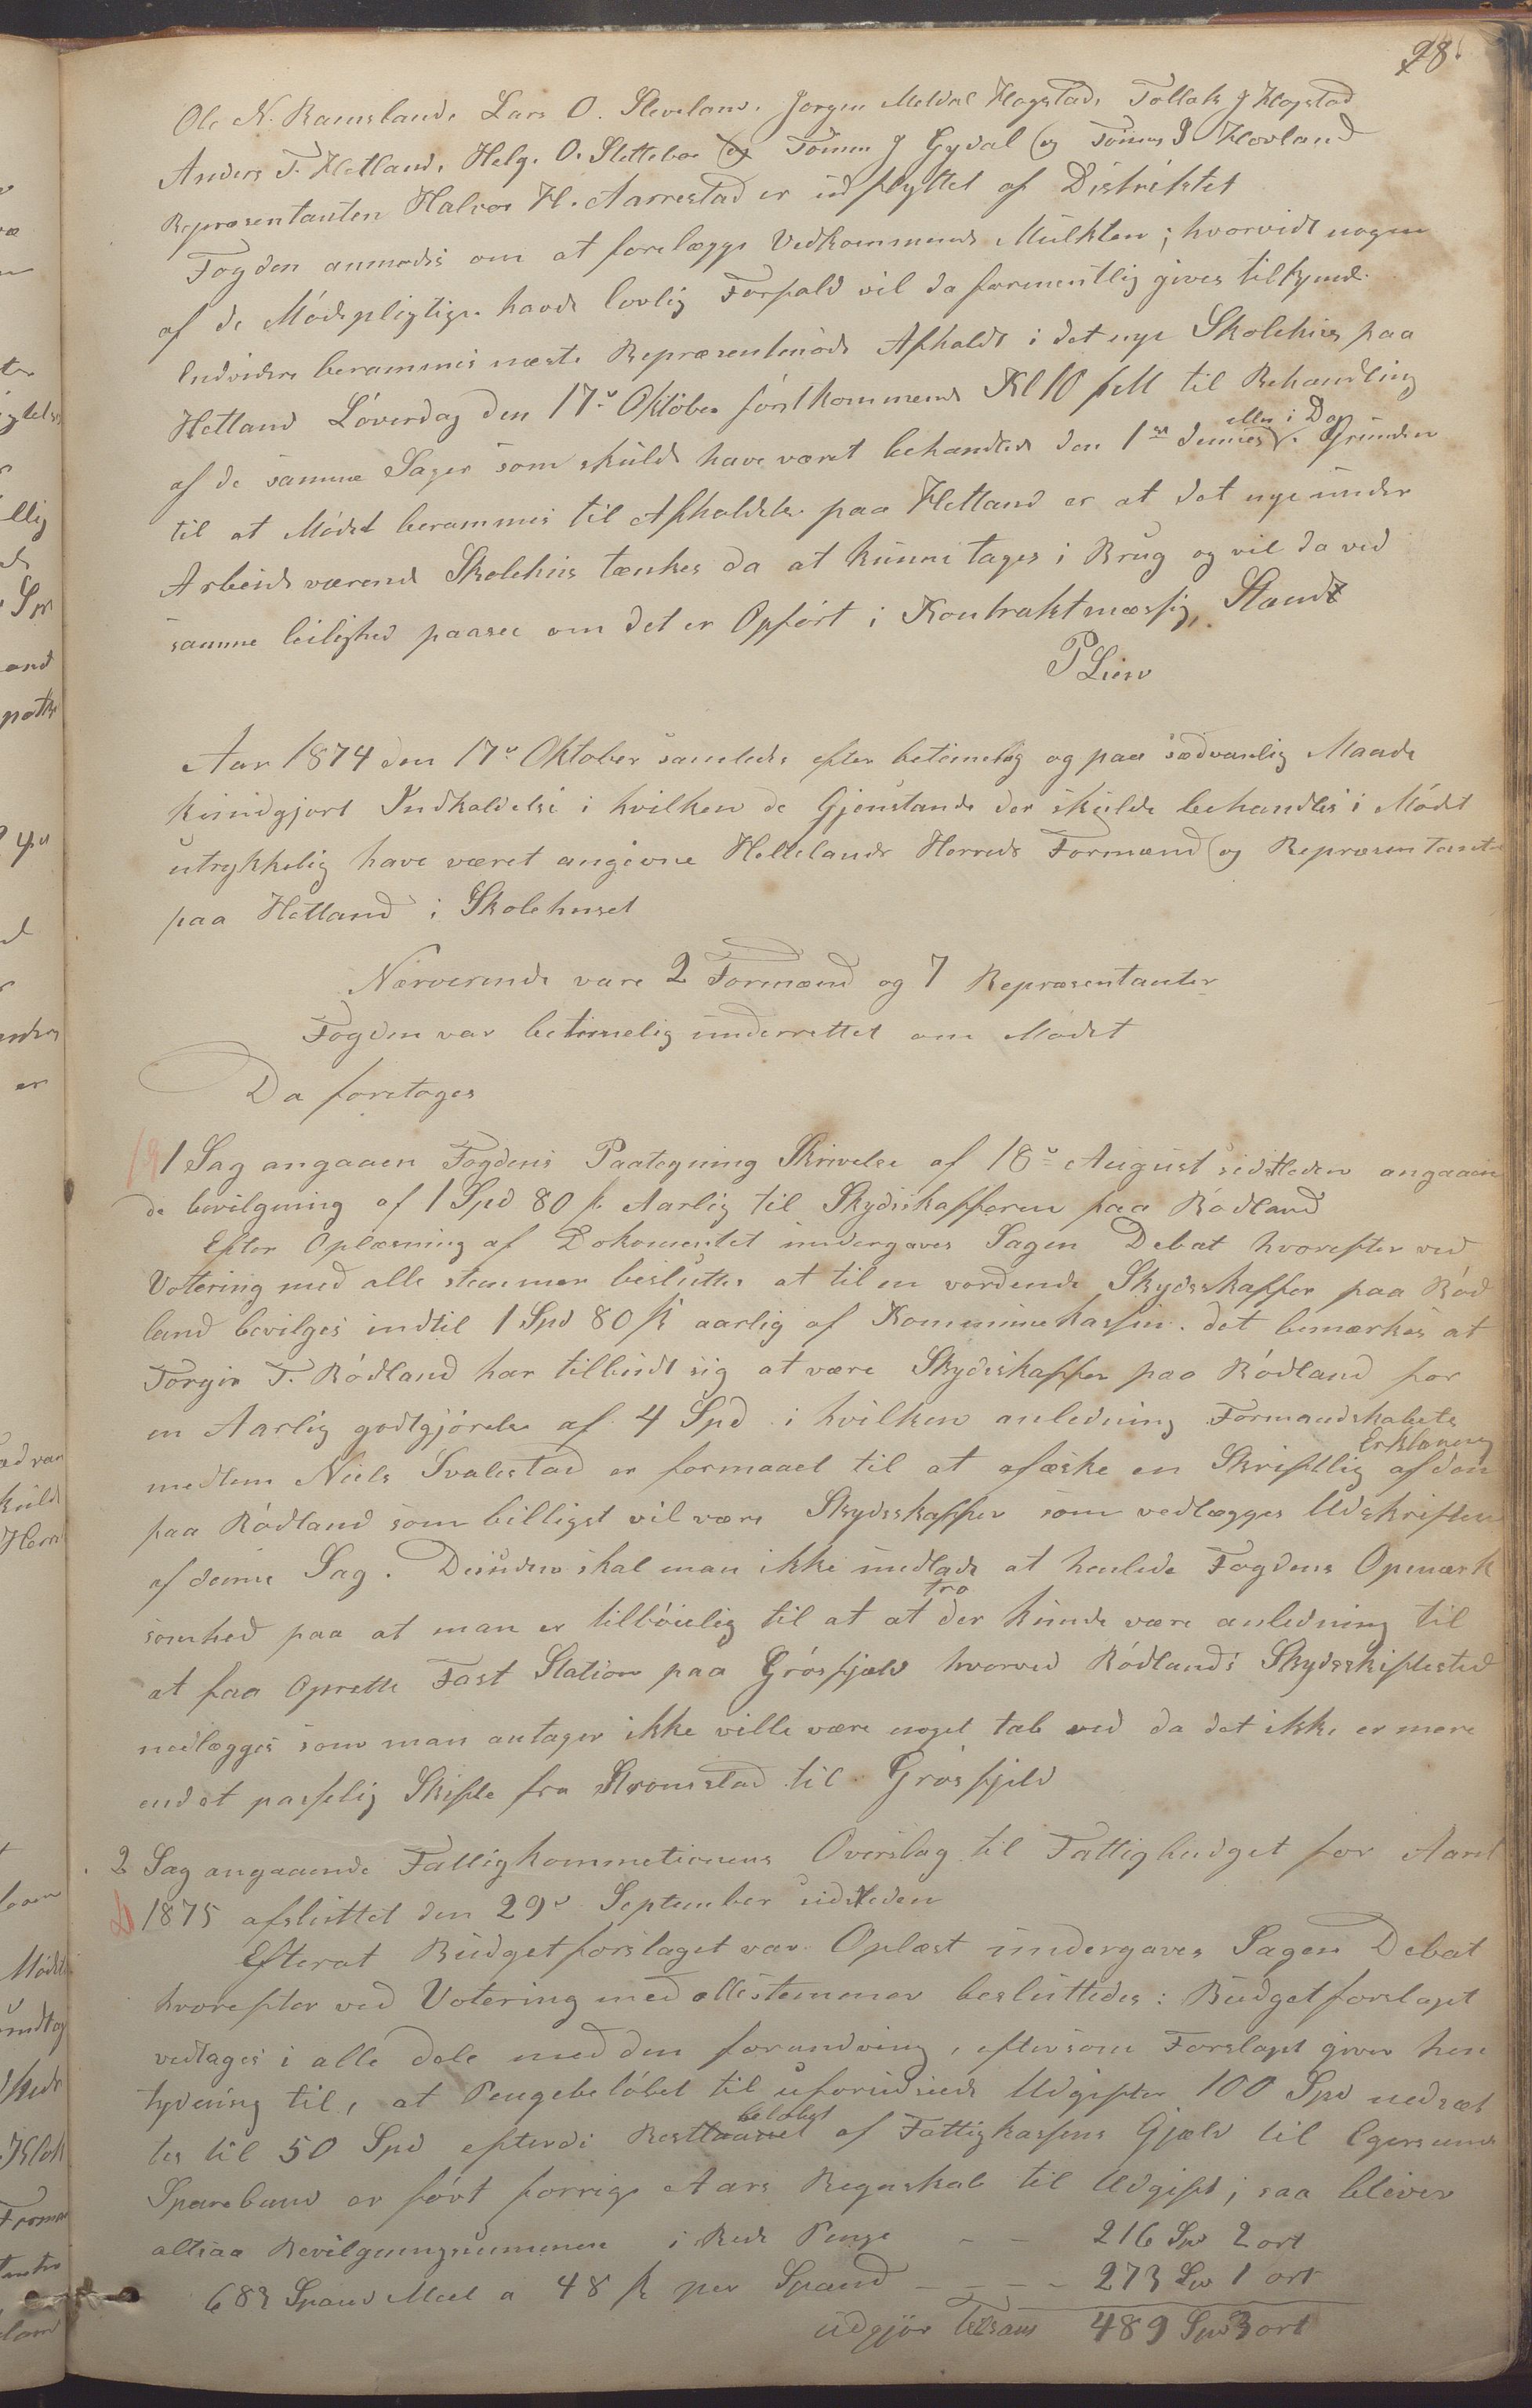 98.
Ole N. Ramsland, Lars O. Sleveland, Jørgen Meldal Hogstad, Tollak J Hogstad
Anders T. Hetland, Helge O. Slettebøe og Tønnes J Gydal og Tønnes J Hovland
Repræsentanten Halvor H. Aarrestad er udflyttet af Distriktet
Fogden anmodes om at forelægge Vedkommende Mulkten; hvorvidt nogen
af de Mødepligtige havde lovlig Forfald vil da formentlig gives tilkjende.
Endvidere berammes næste Repræsentmøde Afholdt i det nye Skolehus paa
Hetland Løverdag den 17de Oktober førstkommende Kl 10 fM til Behandling
af de samme Sager som skulde have været behandlede den 1ste dennes eller i Dag. Grunden
til at Mødet berammes til Afholdelse paa Hetland er at det nye under
Arbeide værende Skolehus tænkes da at kunne tages i Brug og vil da ved
samme leilighed paasee om det er Opført i Kontraktmæssig, Stand
P Lien
Aar 1874 den 17de Oktober samledes efter betimelig og paa sædvanlig Maade
kundgjort Indkaldelse i hvilken de Gjenstande der skulde behandles i Mødet
utrykkelig have været angivne Hellelands Herreds Formænd og Repræsentanter
paa Hetland i Skolehuset
Nærverende vare 2 Formænd og 7 Repræsentanter
Fogden var betimelig underrettet om Mødet
Da foretoges
1 Sag angaaen Fogdens Paategning Skrivelse af 18de August sidstleden angaaen
de bevilgning af 1 Spd 80 s. Aarlig til Skydsskafferen paa Rødland
Efter Oplæsning af Dokomentet undergaves Sagen Debat hvorefter ved
Votering med alle stemmer besluttes at til en vordende Skydsskaffer paa Rød
land bevilges indtil 1 Spd 80 s aarlig af Kommunekassen. det bemærkes at
Torger T. Rødland har tilbudt sig at være Skydsskaffer paa Rødland for
en Aarlig godtgjørelse af 4 Spd i hvilken anledning Formandskabets
medlem Niels Svalestad er formaaet til at afæske en Skriftlig Erklæring af den
paa Rødland som billigst vil være Skydsskaffer som vedlægges Udskriften
af denne Sag. Desuden skal man ikke undlade at henlede Fogdens Opmærk
somhed paa at man er tilbøielig til at tro at der kunde være anledning til
at faa Oprette Fast Station paa Grøsfjeld hvorved Rødlands Skydsskiftested
nedlægges som man antager ikke ville være noget tab ved da det ikke er mere
end et passelig Skifte fra Stromstad til Grøsfjeld
2 Sag angaaende Fattigkommetionens Overslag til Fattigbudget for Aaret
1875 afsluttet den 29de September sidstleden
Efterat Budgetforslaget var Oplæst undergaves Sagen Debat
hvorefter ved Votering med alle stemmer besluttedes: Budgetforslaget
vedtages i alle dele med den forandring, eftersom Forslaget giver hen
tydning til, at Pengebeløbet til uforudseede Udgifter 100 Spd nedsæt
tes til 50 Spd efterdi Restbeløbet af Fattigkassens Gjæld til Egersunds
Sparebank er ført forrige Aars Regnskab til Udgift; saa bliver
altsaa Bevilgningsummen i Rede Penge - - 216 Spd 2 ort
683 Spand Meel a 48 s per Spand - - - - 273 Spd 1 ort
udgjør Tilsam 489 Spd 3 ort